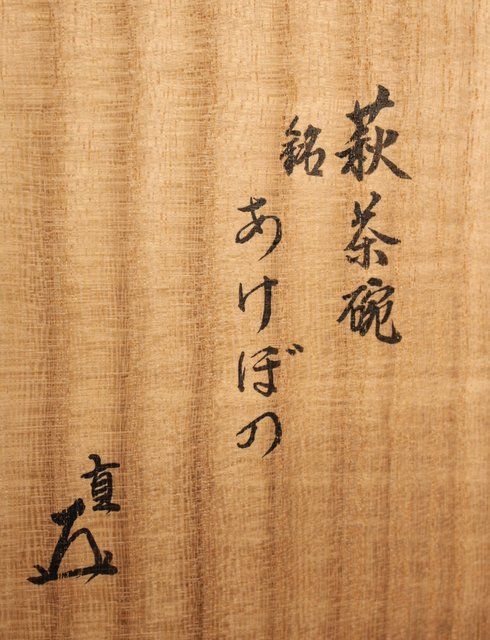 萩茶碗
銘
あけぼの
直